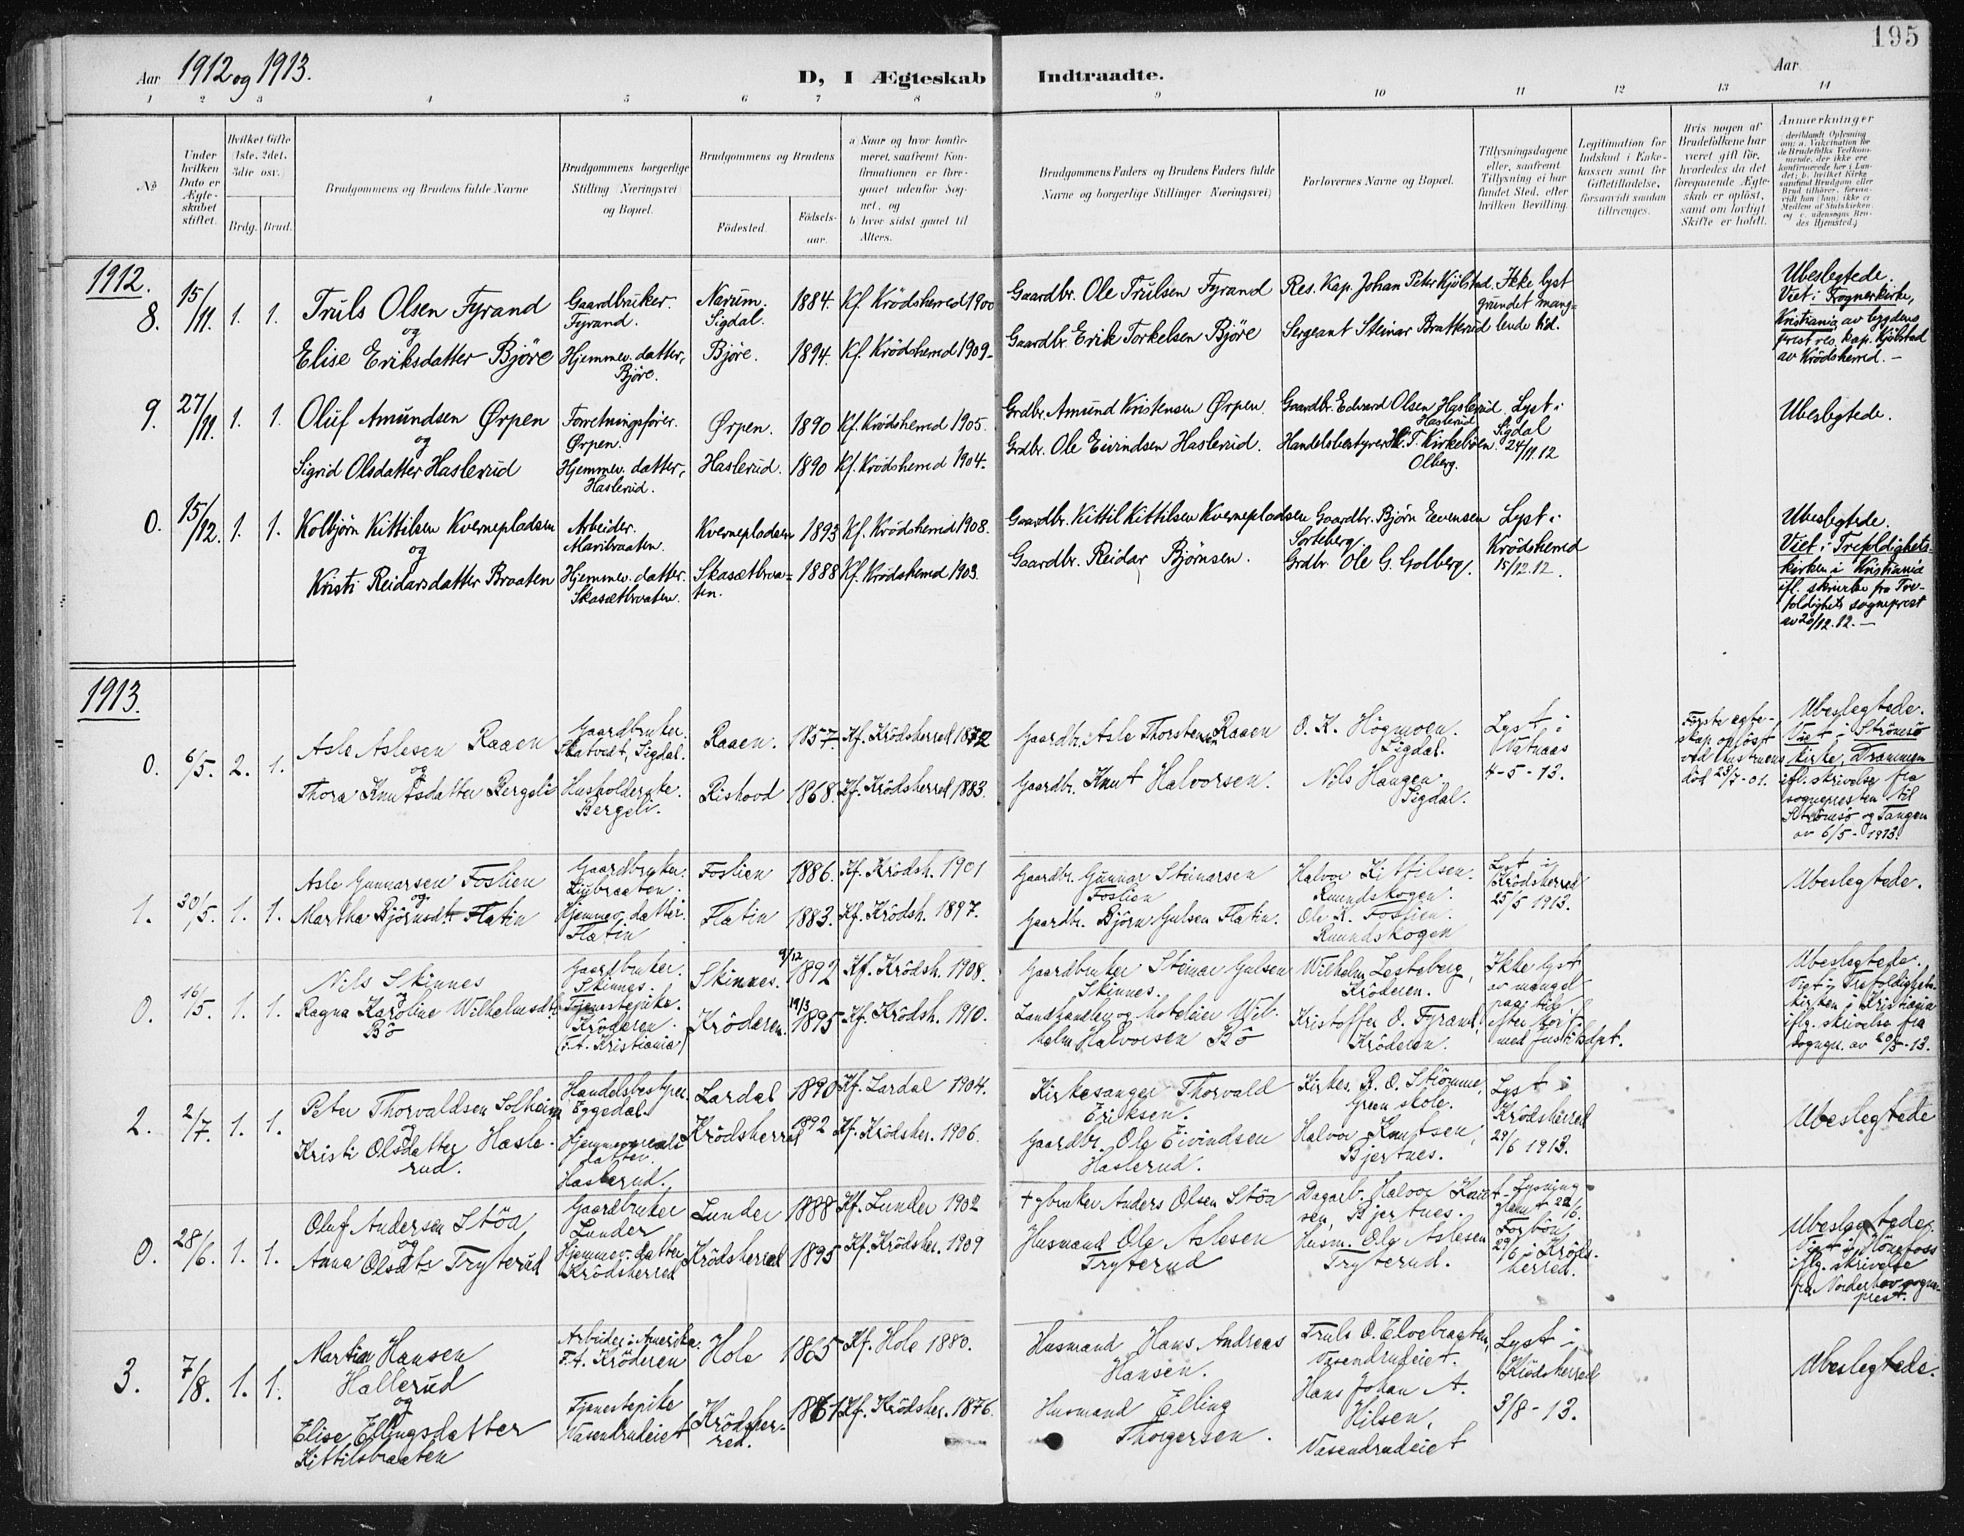 195
Aar 1912 og 1913.
D, I Ægteskab Indtraadte.
Aar
1 2 3 4 5 6 7 8 9 10 11 12 13 14
No
Under hvilken Dato er Ægteskabet stiftet.
Hvilket Gifte 1ste, 2det, 3die osv.)
Brdg. Brud.
Brudgommens og Brudens fulde Navne
Brudgommens borgerlige Stilling Næringsvei og Bopæl.
Brudgommens og Brudens
Födested.
Födsels-aar.
a Naar og hvor konfirmeret, saafremt Konfirmationen er foregaaet udenfor Sognet, og
b hvor sidst gaaet til Alters.
Brudgommens Faders og Brudens Faders fulde Navne og borgerlige Stillinger Næringsvei)
Forlovernes Navne og Bopæl.
Tillysningsdagene eller, saafremt Tillysning ei har fundet Sted, efter hvilken Bevilling.
Legitimation for Indskud i Enkekassen samt for Giftetilladelse, forsaavidt saadan tiltrænges.
Hvis nogen af Brudefolkene har været gift för, hvorledes da det foregaaende Ægteskab er oplöst, samt om lovligt Skifte er holdt.
Anmærkninger
1912.
8. 15/11. 1. 1. Truls Olsen Fyrand
og
Elise Eriksdatter Björe
Gaardbruker.
Fyrand.
Hjemmev. datter,
Björe.
Narum.
Sigdal.
Björe.
1884.
1894.
Kf. Krödsherred 1900
Kf. Krödsherred 1909
Gaardbr. Ole Trulsen Fyrand
Gaardbr. Erik Torkelsen Björe
Res. Kap. Johan Peter Kjölstad.
Sergeant Steinar Bratterud
Ikke lyst
grundet mang-
lende tid.
Ubeslegtede.
Viet i Frognerkirke,
Kristiania av bygdens
prest res. kap. Kjölstad
av Krödsherred.
9. 27/11. 1. 1. Oluf Amundsen Ørpen
og
Sigrid Olsdatter Haslerud
Forretningsförer.
Ørpen.
Hjemmev. datter,
Haslerud.
Ørpen.
Haslerud.
1890
1890
Kf. Krödsherred 1905.
Kf. Krödsherred 1904.
Grdbr. Amund Kristensen Ørpen.
Grdbr. Ole Eivindsen Haslerud.
Gaardbr. Edvard Olsen Haslerud.
Haslerud
Handelsbestyrer H. T. Kirkebøen.
Olberg.
Lyst i
Sigdal
24/11.12
Ubeslegtede.
0. 15/12. 1. 1. Kolbjörn Kittilsen Kvernepladsen
og
Kristi Reidarsdatter Braaten
Arbeider.
Maribraaten.
Hjemmev. datter.
Skasætbraaten.
Kvernepladsen
Skasætbraa-
ten.
1893
1888
Kf. Krödsherred 1908.
Kf. Krödsherred 1903.
Gaardbr. Kittil Kittilsen Kvernepladsen
Gaardbr. Reidar Bjørnsen.
Gaardbr. Björn Evensen
Sorteberg.
Grdbr. Ole G. Golberg.
Lyst i
Krödsherred
15/12.12.
Ubeslegtede.
Viet i Trefoldighets-
kirken i Kristiania
ifl. skrivelse fra Tre-
foldighets sogneprest
av 20/12.12.
1913.
0. 6/5. 2. 1. Asle Aslesen Raaen
og
Thora Knutsdatter Bergeli
Gaardbruker.
Skatvedt, Sigdal.
Husholderske.
Bergeli.
Raaen.
Rishovd
1857.
1868.
Kf. Krödsherred 1872
Kf. Krödsherred 1883.
Gaardbr. Asle Thorstensen Raaen
Gaardbr. Knut Halvorsen.
O. K. Högmoen.
Sigdal.
Nils Haugen
Sigdal.
Lyst i
Vatnaas
4-5-13.
Förste egte-
skap oplöst
ved hustruens
död 23/7-01.
Ubeslegtede.
Viet i Strömsö
kirke, Drammen
ifl. skrivelse fra
sognepresten til
Strömsö og Tangen
av 6/5-1913.
1. 30/5. 1. 1. Asle Gunnarsen Foslien
og
Martha Björnsdt. Flatin
Gaardbruker.
Ljøbraaten.
Hjemmev. datter.
Flatin
Foslien
Flatin
1886.
1883.
Kf. Krödsh. 1901
Kf. Krödsh. 1897.
Gaardbr. Gunnar Steinarsen
Foslien
Gaardbr. Björn Gulsen Flatin.
Halvor Kittilsen.
Ruundskogen.
Ole K. Foslien.
Ruundskogen
Lyst i
Krödsherred
25/5 1913.
Ubeslegtede.
0. 16/5. 1. 1. Nils Skinnes
og
Ragna Karoline Wilhelmsdtr.
Bö
Gaardbruker.
Skinnes.
Tjenestepike.
Kröderen.
(F.t. Kristiania)
Skinnes.
Kröderen.
9/12 1892
19/3 1895
Kf. Krödsh. 1908.
Kf. Krödsh. 1910.
Gaardbruker Steinar Gulsen
Skinnes.
Landhandler og hotelier Wil-
helm Halvorsen Bö
Wilhelm Lesteberg,
Kröderen.
Kristoffer O. Fyrand,
Kröderen.
Ikke lyst
av mangel
paa tid,
Ubeslegtede.
Viet i Trefoldighets-
kirken i Kristiania
iflg. skrivelse fra
sognepr. av 20/5-13.
2. 2/7. 1. 1. Peter Thorvaldsen Solheim
og
Kristi Olsdatter Hasle-
rud.
Handelsbestyrer
Eggedal.
Hjemmeværende
datter.
Haslerud.
Lardal
Krödsherred
1890
1892
Kf. Lardal 1904.
Kf. Krödsher. 1906.
Kirkesanger Thorvald
Eriksen.
Gaardbr. Ole Eivindsen
Haslerud.
Kirkes. R. O. Strömme,
Green skole.
Halvor Knutsen,
Bjertnes.
Lyst i
Krödsherred
29/6 1913.
Ubeslegtede
0. 28/6. 1. 1. Oluf Andersen Stöa
og
Anna Olsdtr. Tryterud
Gaardbruker
Lunder
Hjemmev. datter
Krödsherred
Lunder
Krödsherred
1888
1895
Kf. Lunder 1902
Kf. Krödsher. 1909
+ gbruker Anders Olsen Stöa
Husmand Ole Aslesen
Tryterud
Dagarb. Halvor Knut-
sen, Bjertnes.
Husm. Ole Aslesen
Tryterud.
Lysning
glemt 22/6.
Forbön
29/6 i Kröds-
herred.
Ubeslegtede.
Viet i Hönefoss
iflg. skrivelse
fra Norderhov sogne-
prest.
3. 7/8. 1. 1. Martin Hansen
Hallerud
og
Elise Ellingsdatter
Kittilsbraaten
Arbeider i Amerika.
F.t. Kröderen
Tjenestepike
Vasendrudeiet
Hole
Krödsher-
red.
1865
1861
Kf. Hole 1880.
Kf. Krödsher. 1876.
Husmand Hans Andreas
Hansen.
Husmand Elling
Thorgersen.
Truls O. Elvebraaten,
Vasendrudeiet.
Hans Johan A.
Nilsen,
Vasendrudeiet
Lyst i
Krödsherred
3/8-13.
Ubeslegtede.